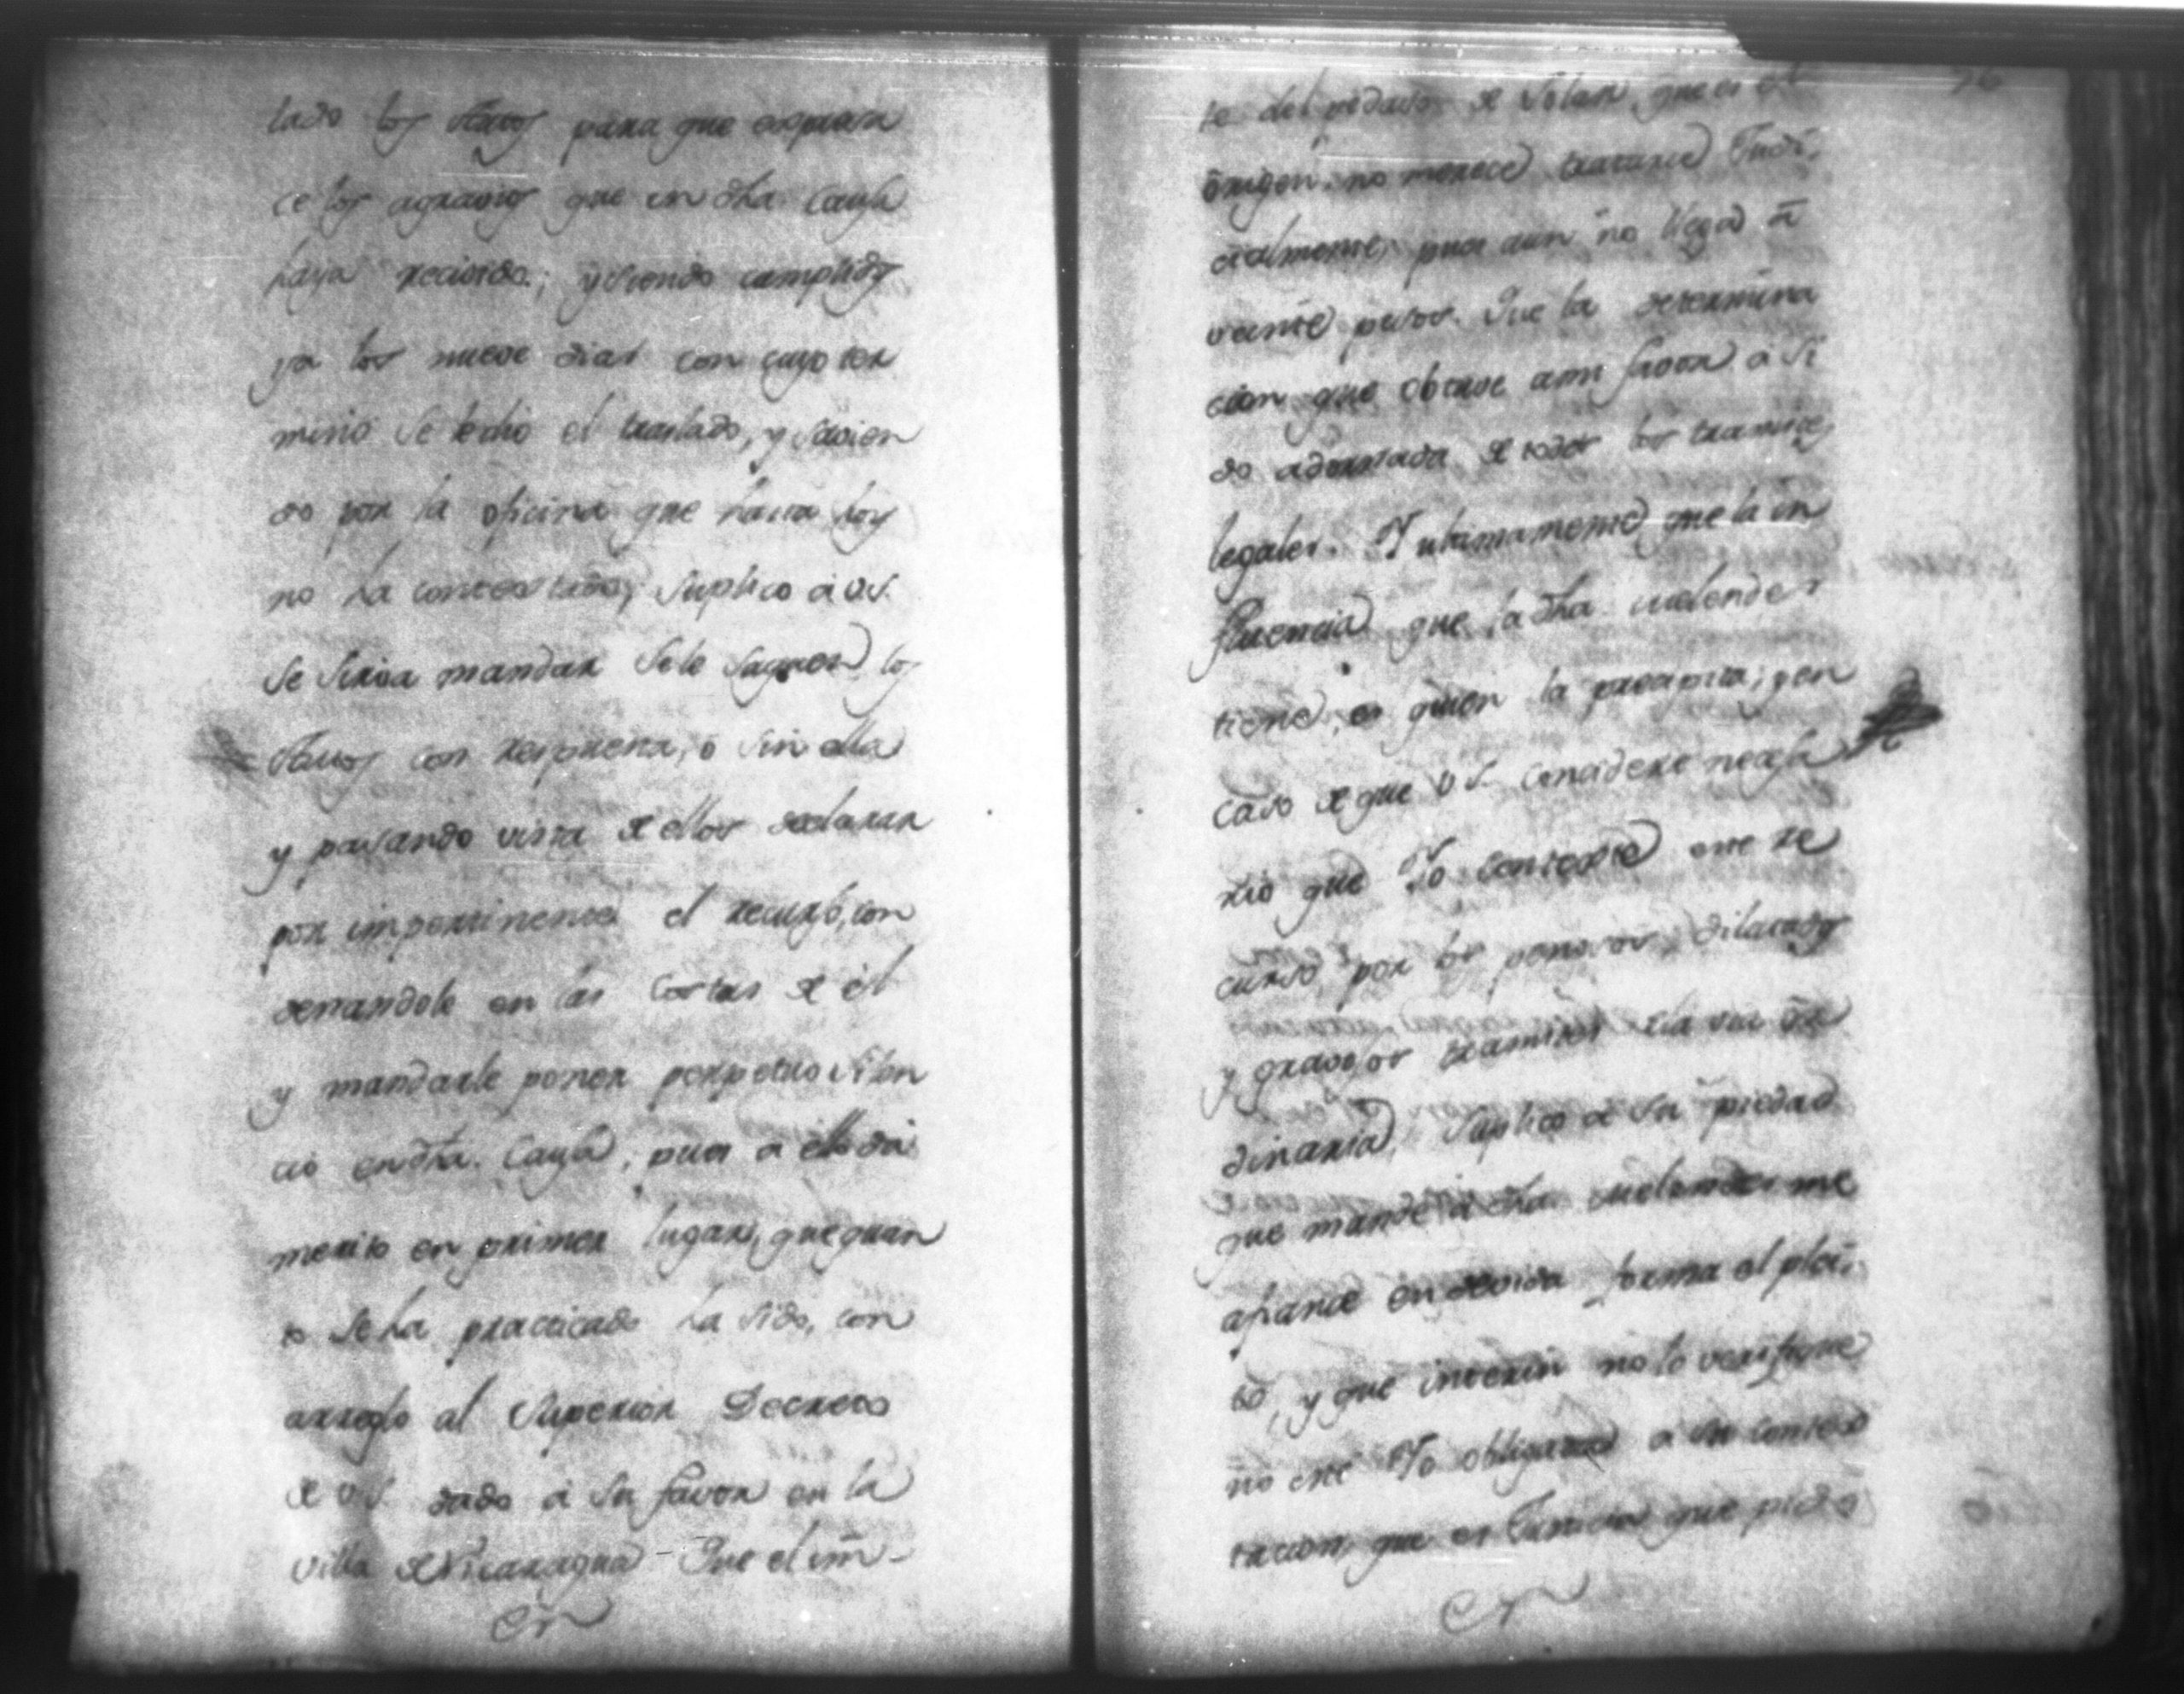 lado los Autos para que exprara
ce los agravios que en dha. causa
haya recivido; y siendo cumplidos
ya los nueve dias con cuyo ter
mino se le dio el traslado, y savien
do por la oficina que hasta hoy
no ha contestado, suplico á V.S.
se sirva mandar se le saquen los
Autos con respuesta, ó sin ella
y pasando vista de ellos declarar
por impertinente el recurso, con
denandole en las costas de él
y mandarle poner perpetuo silen
cio en dha. causa, pues a ello dá
merito en primer lugar, que quan
to se ha practicado ha sido, con
arreglo al Superior Decreto
de V.S. dado á su favor en la
Villa de Nicaragua - Que el im-
76
te del pedaso de Solar, que es el
origen, no merece tratarse Judi,
cialmente, pues aun no llega á
veinte pesos. Que la determina
cion que obtuve a mi favor á si
do adornada de todos los tramites
legales. Y ultimamente que la in
fluencia que la dha. Melendes
tiene, es quien la precipita; y en
caso de que V.S. concidere necesa
rio que Yo conteste este re
curso por los penosos, dilatados
y gravosos tramites de la via or
dinaria, suplico á su piedad
que mande á dha. Melendes me
afiance en devida forma el plei,
to, y que interin no lo verifique
no esté Yo obligada á su contes
tacion, que es Justicia que pido